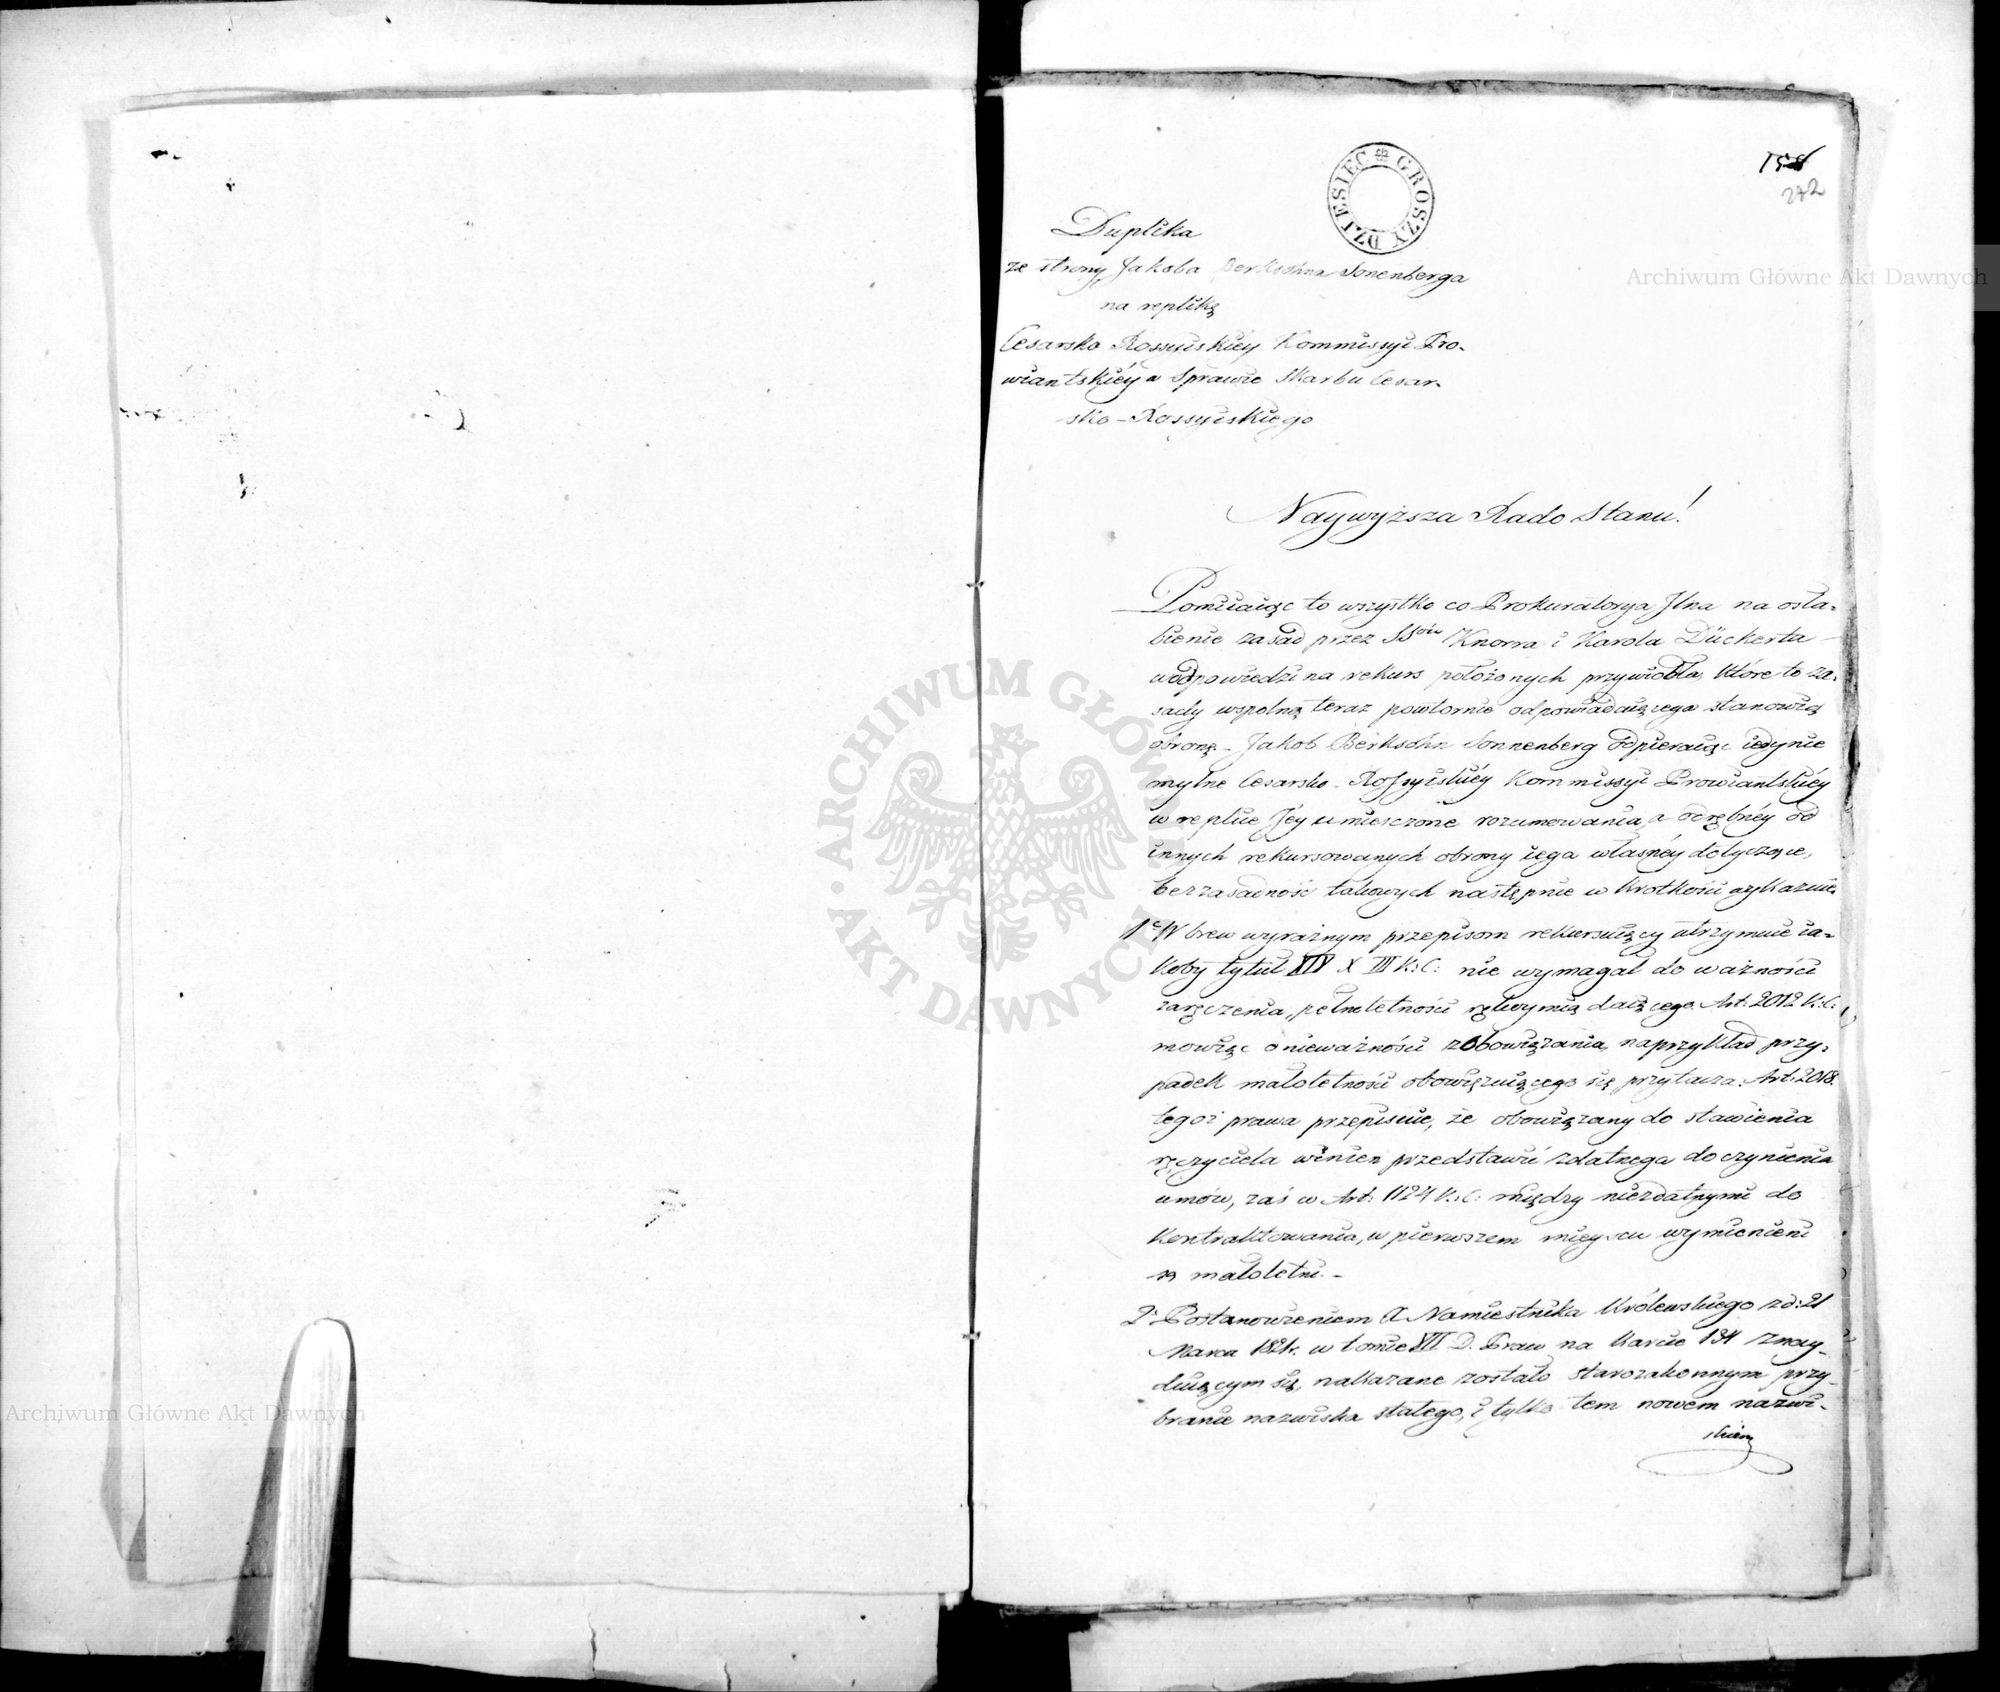 158
282
DZIESIEC GROSZY
Duplika
ze strony Jakoba Berksohna Sonenberga
na replikę
Cesarsko Rossyiskiéy Kommissyi Pro-
wiantskiéy w Sprawie Skarbu Cesar-
sko-Rossyiskiego
Naywyższa Rado Stanu!
Pomiiaiąc to wszystko co Prokuratorya Jlna na osła-
bienie zasad przez SSów Knorra i Karola Dückerta
w odpowiedzi na rekurs położonych przywiodła, które to za-
sady wspolną teraz powtornie odpowiadaiącego stanowią
obronę - Jakob Berksohn Sonnenberg odpieraiąc iedynie
mylne Cesarsko-Rossyiskiéy Kommissyi Prowiantskiéy
w replice Jéy umiesczone rozumowania, a odrębnéy od
innych rekursowanych obrony iego własnéy dotyczące,
bezzasadność takowych następnie w krotkości wykazuie
1e Wbrew wyraźnym przepisom rekursuiący utrzymuie ia-
koby tytuł XIV X III K: C: nie wymagał do ważności
zaręczenia, pełnoletności rękoymią daiącego. Art: 2012 K: C:
mowiąc o nieważności zobowiązania, naprzykład przy-
padek małoletności obowięzuiącego się przytacza. Art: 2018.
tegoż prawa przepisuie, że obowiązany do stawienia
ręczyciela winien przedstawić zdatnego do czynienia
umów, zaś w Art: 1124 K: C: między niezdatnymi do
kontraktowania, w pierwszem mieyscu wymienieni
są małoletni. -
2. Postanowieniem X Namiestnika Królewskiego z d: 21
Marca 1821r. w tomie VII D. Praw na karcie 134 znay-
duiącym się, nakazane zostało starozakonnym przy-
branie nazwiska stałego, i tylko tem nowem nazwi-
skiem
Archiwum Główne Akt Dawnych
Archiwum Główne Akt Dawnych
ARCHIWUM GŁÓWNE AKT DAWNYCH